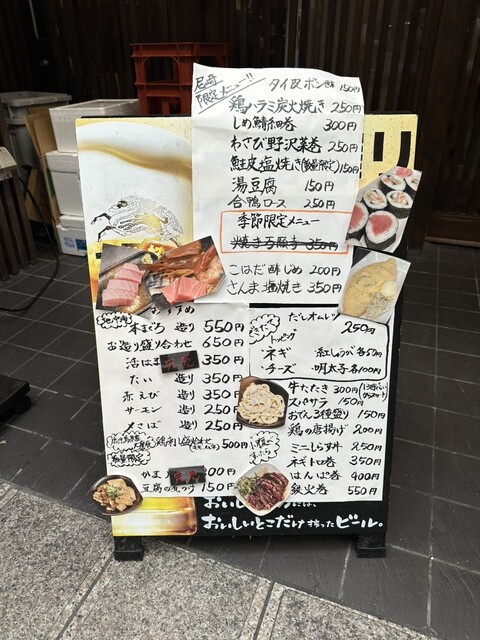 限定メニュー!!
タイ皮ポン酢 150円
鶏ハラミ炭火焼き 250円
しめ鯖細巻 300円
わさび野沢菜巻 250円
鮭皮塩焼き(数量限定)150円
湯豆腐 150円
合鴨ロース 250円
季節限定メニュー
350円
こはだ酢じめ 200円
さんま塩焼き 350円
おすすめ
本まぐろ 造り 550円
お造り盛り合わせ 650円
活はも 完売 350円
たい 造り 350円
赤えび 造り 350円
サーモン 造り 250円
〆さば 造り 250円
500円
数量限定
完売 00円
150円
だしオムレツ
250円
トッピング
・ネギ 紅しょうが各50円
・チーズ ・明太子各100円
牛たたき 300円
スパサラ 150円
おでん3種盛り 150円
鶏の唐揚げ 200円
ミニしらす丼 250円
ネギトロ巻 350円
はんぱ巻 400円
鉄火巻 550円
おいしい には、
おいしいとこだけ搾ったビール。